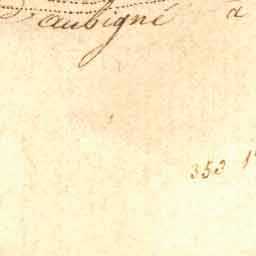 aubigné a
353